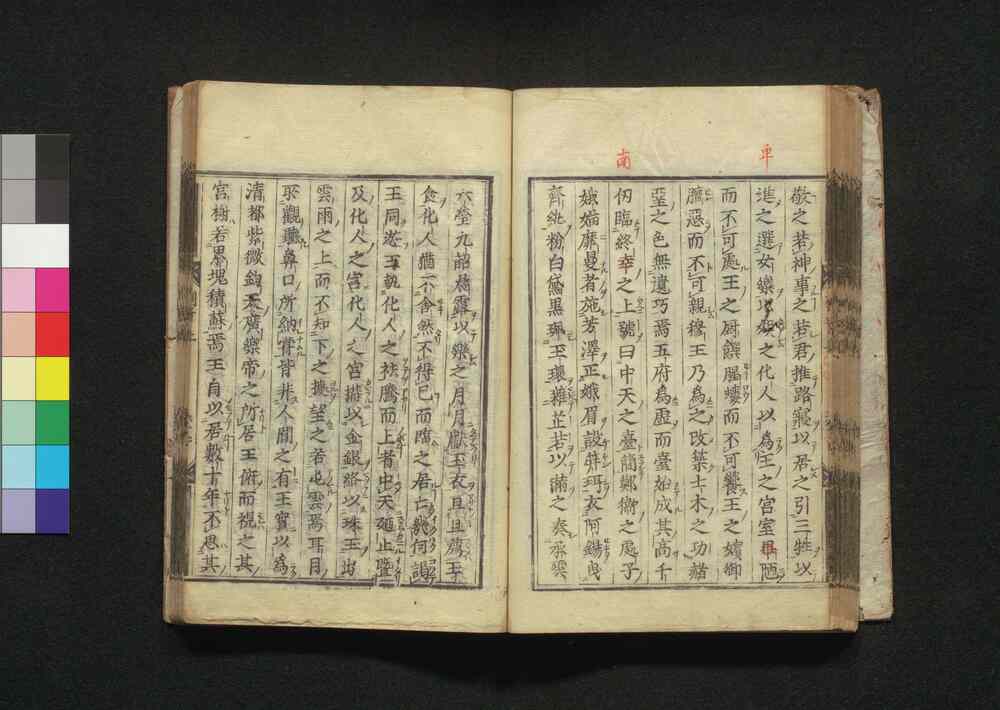 卑
南
敬之若神事之若君推路寢以居之引三牲以
進之選女樂以娛之化人以為王之宮室卑陋
而不可處王之厨饌腥螻而不可饗王之嬪御
膻惡而不可親穆王乃為之改築土木之功赭
堊之色無遺巧焉五府為虛而臺始成其高千
仞臨終南之上號曰中天之臺簡鄭衛之處子
娥媌靡曼者施芳澤正蛾眉設笄珥衣阿錫曳
齊紈粉白黛黑珮玉環雜芷若以滿之奏承雲
六瑩九韶晨露以樂之月月獻玉衣旦旦薦玉
食化人猶不舍然不得已而臨之居亡幾何謁
王同遊王執化人之袪騰而上者中天廼止暨
及化人之宮化人之宮搆以金銀絡以珠玉出
雲雨之上而不知下之據望之若屯雲焉耳目
所觀聽鼻口所納嘗皆非人間之有王實以為
清都紫微鈞天廣樂帝之所居王俯而視之其
宮榭若累塊積蘇焉王自以居數十年不思其